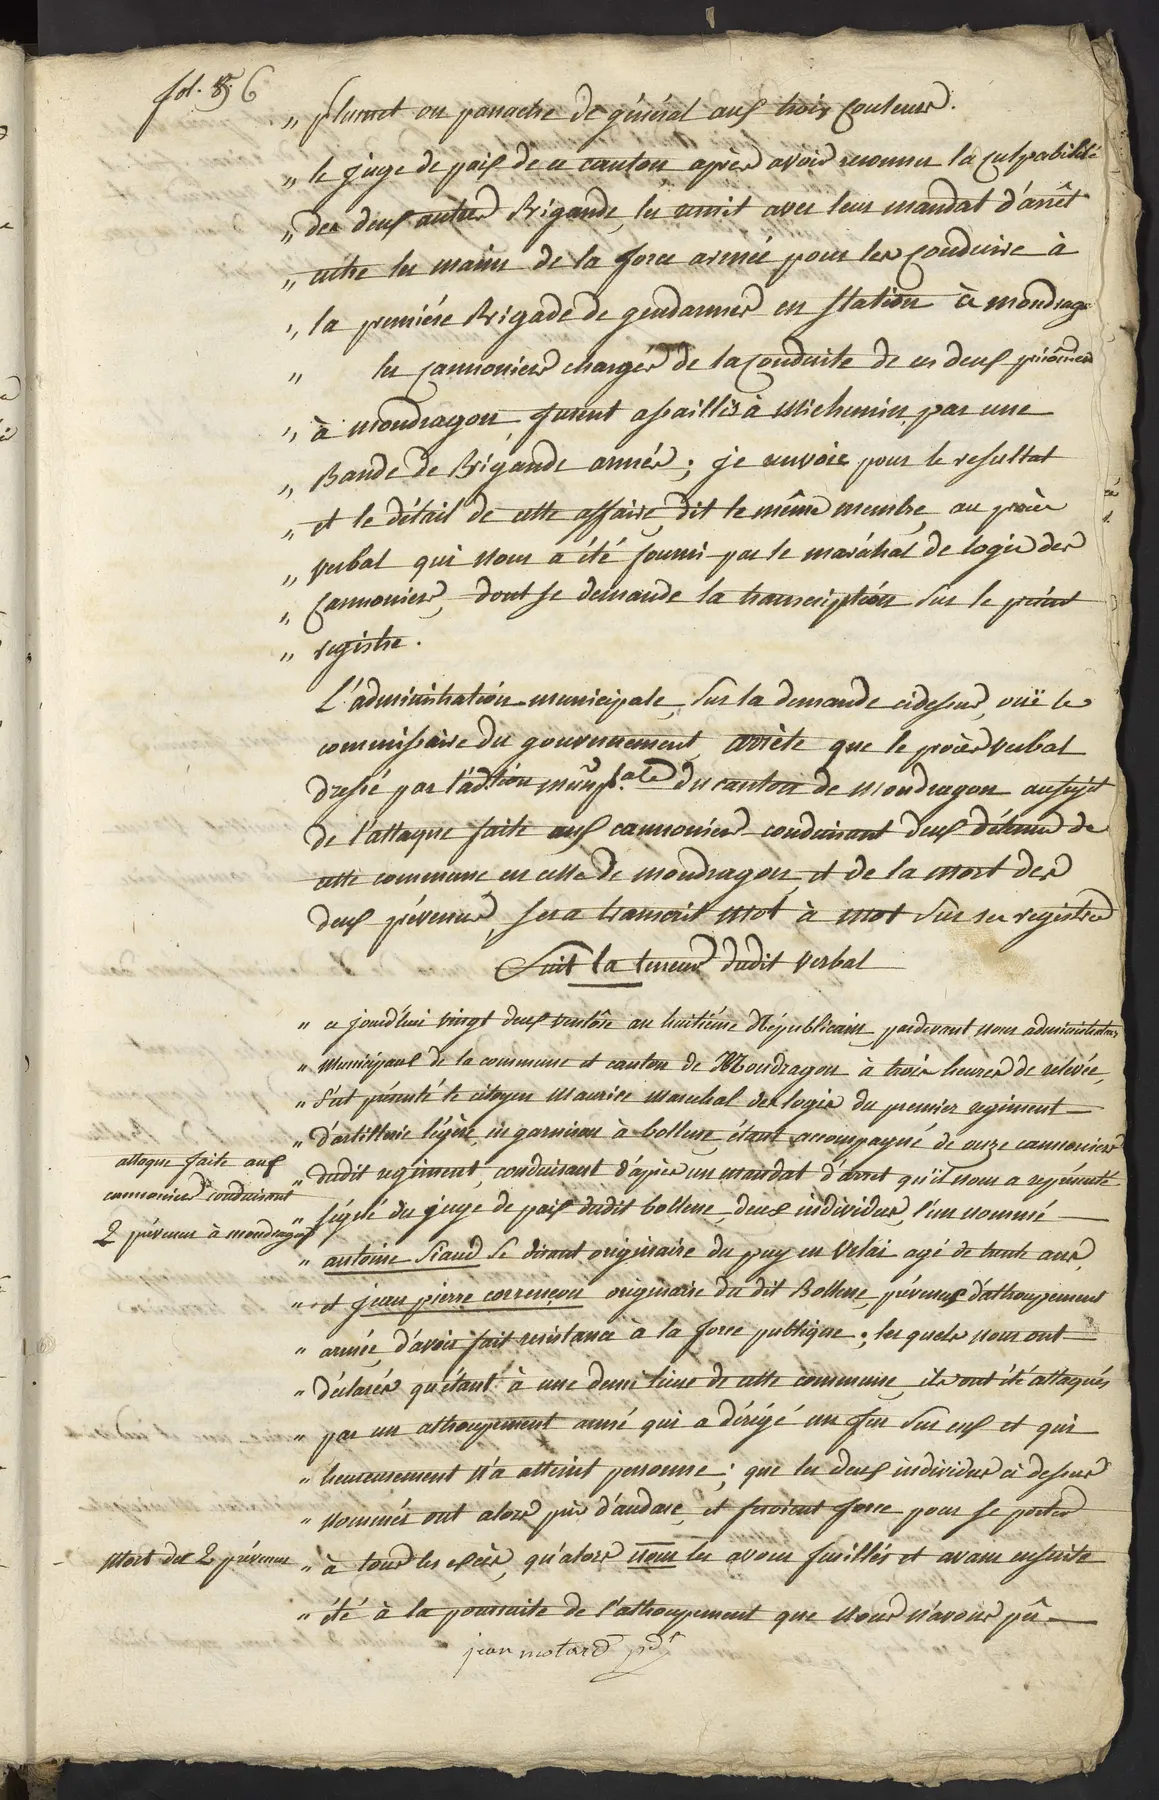 fol. 86
" plumet ou panache de général aux trois Couleurs.
" le juge de paix de ce canton après avoir reconnu la Culpabilité
" des deux autres Brigands, les remit avec leur mandat d'arrêt
" entre les mains de la force armée pour les Conduire à
" la première Brigade de gendarmes en Station à mondragon
" les Cannoniers chargés de la Conduite de ces deux prisonniers
" à mondragon, furent assaillis à michemin, par une
" Bande de Brigands armés; je renvoie pour le resultat
" et le détail de cette affaire, dit le même membre, au procès
" verbal qui nous a été fourni par le maréchal de logis des
" Cannoniers, dont je demande la transcription sur le présent
" registre.
L'administration municipale, sur la demande cidessus, ouï le
commissaire du gouvernement, arrète que le procès verbal
dressé par l'adtion munip.ale du canton de Mondragon ausujet
de l'attaque faite aux cannoniers conduisant deux détenus de
cette commune en celle de mondragon, et de la mort des
deux prévenus, sera transcrit mot à mot sur ses registres
Suit la teneur dudit verbal
" ce jourd'hui vingt deux ventôse an huitième Républicain, pardevant nous administrateurs
" Municipaux de la commune et canton de Mondragon à trois heures de relevée,
" s'est présenté le citoyen Maurice Marechal des logis du premier regiment
" d'artillerie légère en garnison à bollene, étant accompagné de onze cannoniers
attaque faite aux
" dudit regiment, conduisant d'après un mandat d'arret qu'il nous a représenté
cannoniers conduisant
" signé du juge de paix dudit bollene, deux individus, l'un nommé
2 prévenus à mondragon
" antoine Siaud se disant originaire du puy en Velai agé de trente ans,
" et jean pierre corrençon originaire du dit Bollene, prévenus d'attroupement
" armé, d'avoir fait resistance à la force publique; les quels nous ont
" déclarés qu'étant à une demi lieue de cette commune, ils ont été attaqués
" par un attroupement armé qui a dirigé un feu sur eux et qui
" heureusement n'a atteint personne; que les deux individus ci dessus
" nommés ont alors pris d'audace, et feroient force pour se porter
Mort des 2 prévenus
" à tous les excès, qu'alors nous les avons fusillés et avons ensuite
" été à la poursuite de l'attroupement que nous n'avons pû
jean motard pdt